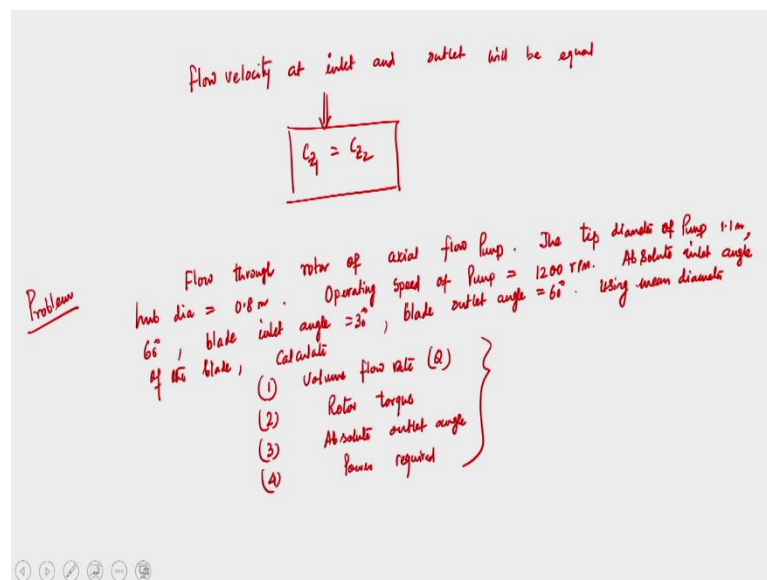 flow velocity at inlet and outlet will be equal
C_{z_1} = C_{z_2}
Problem
Flow through rotor of axial flow Pump. The tip diameter of Pump 1.1m,
hub dia = 0.8m. Operating Speed of Pump = 1200 rpm. Absolute inlet angle
60°, blade inlet angle = 30°, blade outlet angle = 60°. Using mean diameter
of the blade, Calculate
(1) Volume flow rate (Q)
(2) Rotor torque
(3) Absolute outlet angle
(4) Power required